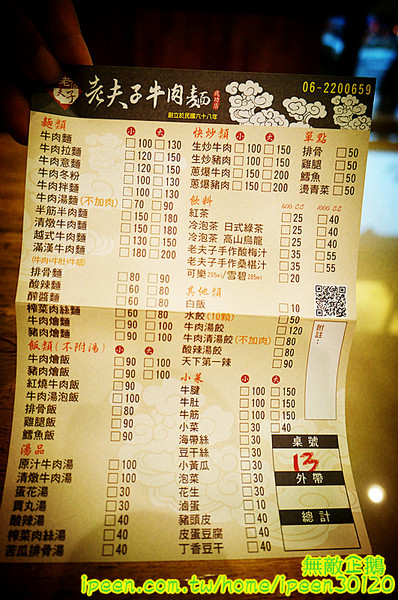 老夫子
老夫子牛肉麵 成功店
創立於民國六十八年
06-2200659
麵類 小 大
牛肉麵 100 130
牛肉拉麵 120 150
牛肉意麵 120 150
牛肉冬粉 100 130
牛肉拌麵 100 130
牛肉湯麵(不加肉) 70 90
半筋半肉麵 150 180
清燉牛肉麵 120 150
越式牛肉麵 130 160
滿漢牛肉麵 150 180
(牛肉+牛肚+牛筋)
排骨麵 60 80
酸辣麵 60 80
炸醬麵 60 80
榨菜肉絲麵 60 80
牛肉燴麵 100 150
豬肉燴麵 90 130
飯類(不附湯) 小 大
牛肉燴飯 100 150
豬肉燴飯 90 130
紅燒牛肉飯 100
牛肉湯泡飯 100
排骨飯 80
雞腿飯 90
鱈魚飯 90
湯品
原汁牛肉湯 100
清燉牛肉湯 100
蛋花湯 30
貢丸湯 30
酸辣湯 40
榨菜肉絲湯 40
苦瓜排骨湯 40
快炒類 小 大
生炒牛肉 100 150
生炒豬肉 100 150
蔥爆牛肉 150 200
蔥爆豬肉 150 200
飲料 600cc 1000cc
紅茶 25 40
冷泡茶 日式綠茶 25 40
冷泡茶 高山烏龍 25 40
老夫子手作酸梅汁 35 55
老夫子手作桑椹汁 35 55
可樂295ml/雪碧295ml 20
其他類
白飯 10
水餃(10顆) 50
牛肉湯餃 120
牛肉清湯餃(不加肉) 80
酸辣湯餃 80
天下第一辣
小菜 小 大
牛腱 100 150
牛肚 100 150
牛筋 100 150
小菜 40
海帶絲 30
豆干絲 30
小黃瓜 30
泡菜 30
花生 30
滷蛋 10
豬頭皮 40
皮蛋豆腐 40
丁香豆干 40
單點
排骨 50
雞腿 50
鱈魚 50
燙青菜 50
附註:
桌號
13
外帶
總計
無敵企鵝
ipeen.com.tw/home/ipeen30120